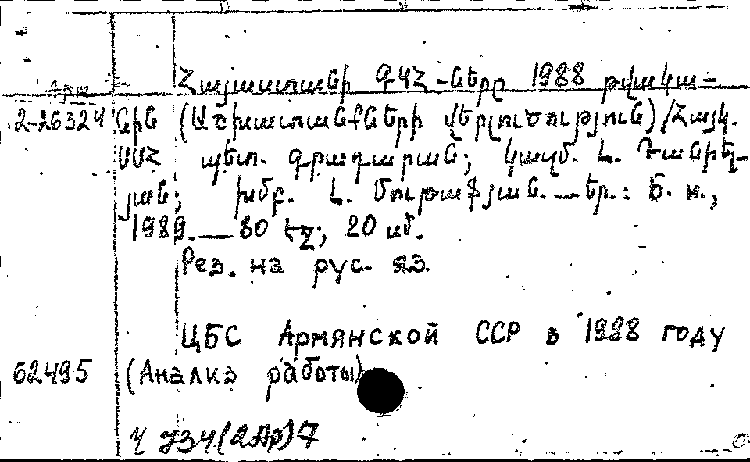 Հայաստանի ԳԿՀ-ները 1988 թվակա-
2-26324 նին (Աշխատանքների վերլուծություն)/Հայկ.
ՍՍՀ պետ. գրադարան; կազմ. Լ. Դանիել-
յան; խմբ. Լ. Մուրադյան. — Եր.: Б. и.,
1989. — 80 էջ; 20 սմ.
Рез. на рус. яз.
ЦБС Армянской ССР в 1988 году
62495 (Анализ работы)